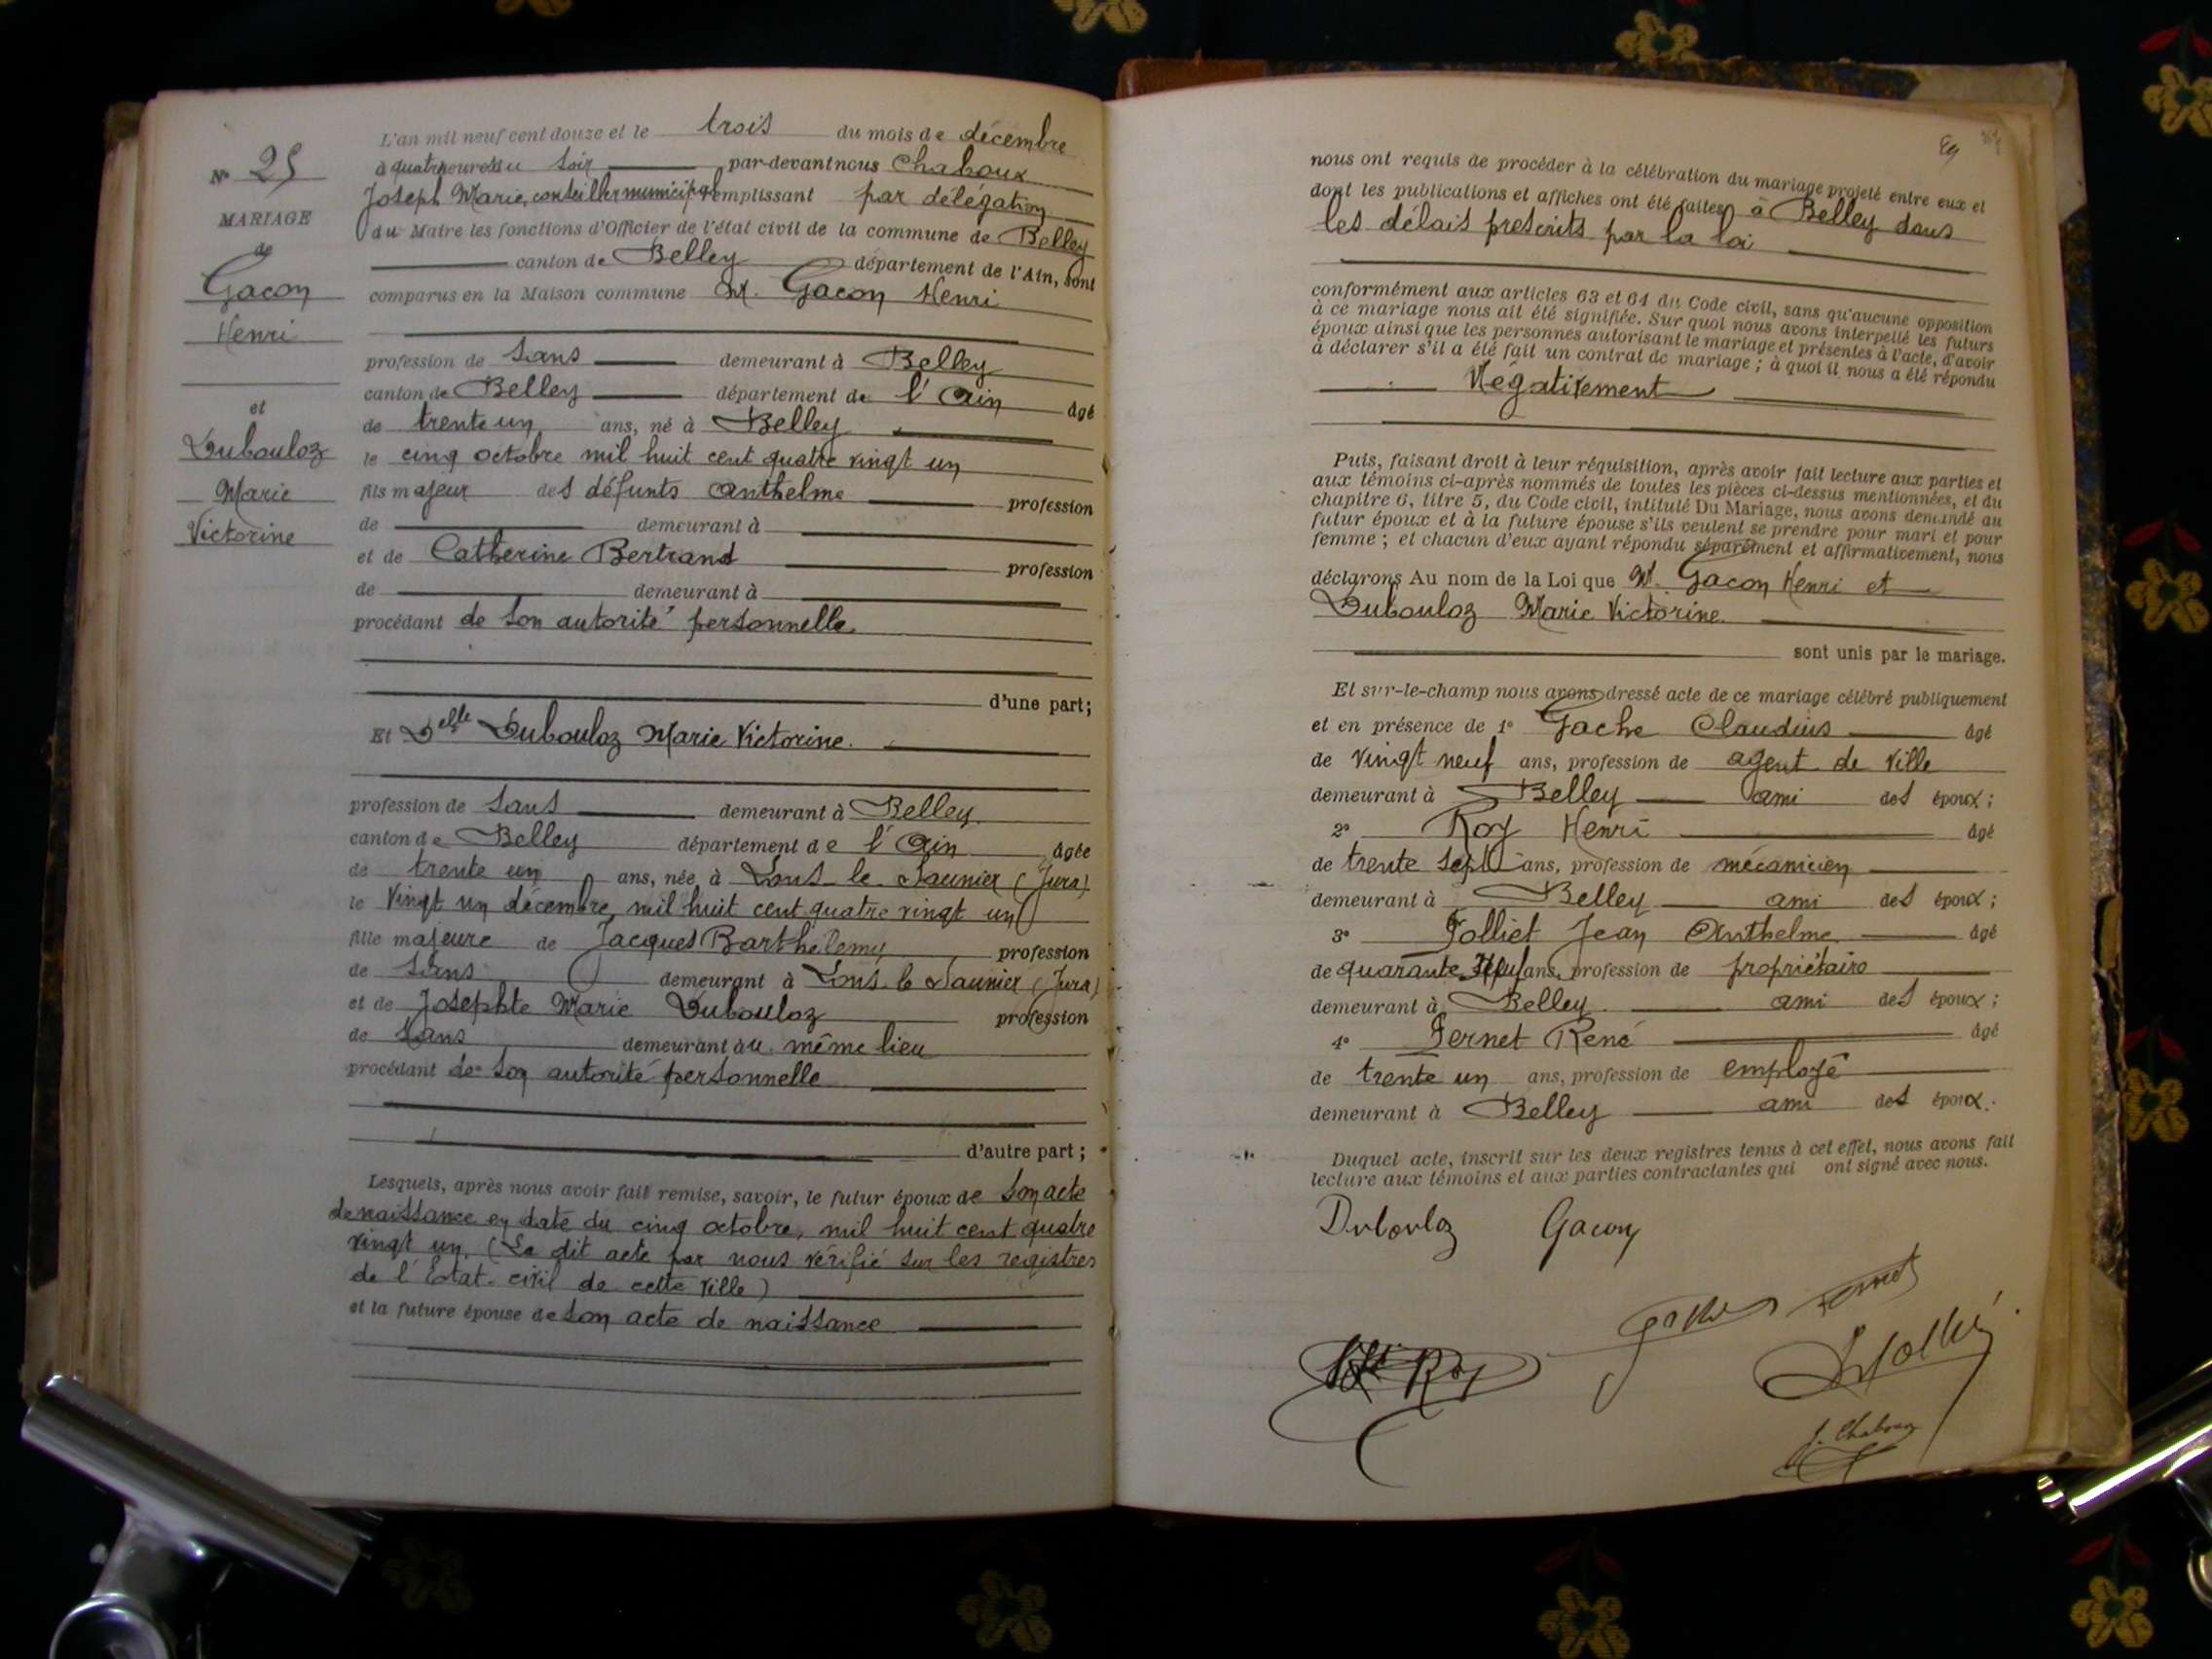 L'an mil neuf cent douze et le trois du mois de décembre
à quatre heures du soir par-devant nous Chaboux
Joseph Marie, conseiller municipal remplissant par délégation
du Maire les fonctions d'Officier de l'état civil de la commune de Belley
canton de Belley département de l'Ain, sont
comparus en la Maison commune M. Gacon Henri
profession de sans demeurant à Belley
canton de Belley département de l'Ain âgé
de trente un ans, né à Belley
le cinq octobre mil huit cent quatre vingt un
fils majeur des défunts Anthelme profession
de demeurant à
et de Catherine Bertrand profession
de demeurant à
procédant de son autorité personnelle
d'une part;
Et Delle Dubouloz Marie Victorine.
profession de sans demeurant à Belley
canton de Belley département de l'Ain âgée
de trente un ans, née à Lons le Saunier (Jura)
le vingt un décembre, mil huit cent quatre vingt un
fille majeure de Jacques Barthélemy profession
de sans demeurant à Lons-le Saunier (Jura)
et de Josephte Marie Dubouloz profession
de sans demeurant au même lieu
procédant de son autorité personnelle
d'autre part;
Lesquels, après nous avoir fait remise, savoir, le futur époux de son acte
de naissance en date du cinq octobre, mil huit cent quatre
vingt un. (Le dit acte par nous vérifié sur les registres
de l'Etat-civil de cette ville)
et la future épouse de son acte de naissance
N° 25
MARIAGE
de
Gacon
Henri
et
Dubouloz
Marie
Victorine
nous ont requis de procéder à la célébration du mariage projeté entre eux et
dont les publications et affiches ont été faites à Belley dans
les délais prescrits par la loi
conformément aux articles 63 et 64 du Code civil, sans qu'aucune opposition
à ce mariage nous ait été signifiée. Sur quoi nous avons interpellé les futurs
époux ainsi que les personnes autorisant le mariage et présentes à l'acte, d'avoir
à déclarer s'il a été fait un contrat de mariage; à quoi il nous a été répondu
Négativement
Puis, faisant droit à leur réquisition, après avoir fait lecture aux parties et
aux témoins ci-après nommés de toutes les pièces ci-dessus mentionnées, et du
chapitre 6, titre 5, du Code civil, intitulé Du Mariage, nous avons demandé au
futur époux et à la future épouse s'ils veulent se prendre pour mari et pour
femme; et chacun d'eux ayant répondu séparément et affirmativement, nous
déclarons Au nom de la Loi que M. Gacon Henri et
Dubouloz Marie Victorine.
sont unis par le mariage.
Et sur-le-champ nous avons dressé acte de ce mariage célébré publiquement
et en présence de 1° Gache Claudius âgé
de vingt neuf ans, profession de agent de ville
demeurant à Belley ami des époux;
2° Roy Henri âgé
de trente sept ans, profession de mécanicien
demeurant à Belley ami des époux;
3° Folliet Jean Anthelme âgé
de quarante neuf ans, profession de propriétaire
demeurant à Belley ami des époux;
4° Fernet René âgé
de trente un ans, profession de employé
demeurant à Belley ami des époux.
Duquel acte, inscrit sur les deux registres tenus à cet effet, nous avons fait
lecture aux témoins et aux parties contractantes qui ont signé avec nous.
Dubouloz Gacon
Roy
J. Chaboux